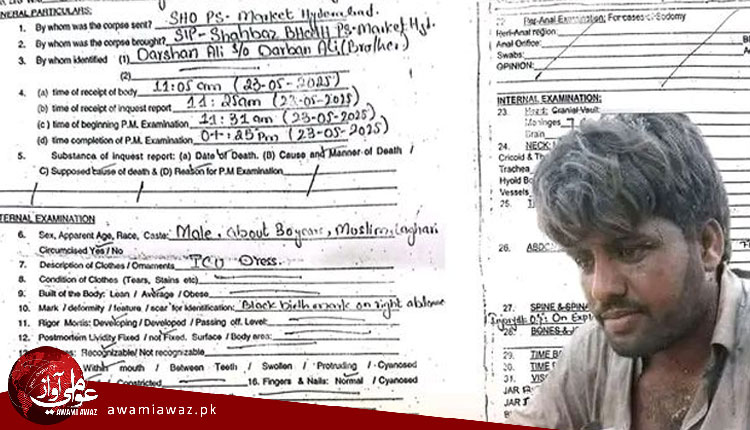 GENERAL PARTICULARS:
1. By whom was the corpse sent? SHO PS- Market Hyderabad.
2. By whom was the corpse brought? SIP- Shahbaz Bhatti PS-Market Hyd.
3. By whom identified (1) Darshan Ali S/o Darban Ali (Brother)
(2)
4. (a) time of receipt of body 11:05 am (23-05-2025)
(b) time of receipt of inquest report 11:25am (23-05-2025)
(c) time of beginning P.M. Examination 11:31 am (23-05-2025)
(d) time completion of P.M. Examination 01:25 pm (23-05-2025)
5. Substance of inquest report: (a) Date of Death. (B) Cause and Manner of Death /
C) Supposed cause of death & (D) Reason for P.M Examination
EXTERNAL EXAMINATION
6. Sex, Apparent Age, Race, Caste: Male, about
Muslim, Laghari
Circumcised Yes / No
7. Description of Clothes / Ornaments ICU Dress.
8. Condition of Clothes (Tears, Stains etc)
9. Built of the Body: Lean / Average / Obese
10. Mark / deformity / feature / scar for identification: Black birth mark on right
11. Rigor Mortis: Developing / Developed / Passing off. Level:
12. Postmortem Lividity Fixed / not Fixed. Surface / Body area:
Recognizable / Not recognizable
mouth / Between Teeth / Swollen / Protruding / Cyanosed
Constricted 16. Fingers & Nails: Normal / Cyanosed
Peri-Anal Examination: For cases of Sodomy
Peri-Anal region
Anal Orifice:
Swabs:
OPINION:
INTERNAL EXAMINATION:
23. Head: Cranial Vault:
Meninges
Brain
24. NECK:
Cricoid & Th
Trachea
Hyoid Bo
Vessels
25.
26. ABDO
27. SPINE & SPINA
On Expl
28. BONES & J
29. TIME B
30. TIME
31. VISC
JAR
JAR
عوامی آواز
AWAMI AWAZ
awamiawaz.pk